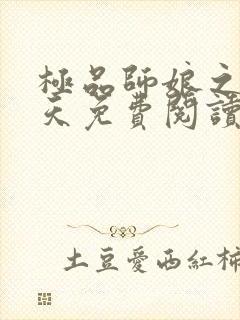 極品師娘之
天免費閱讀
土豆愛西紅柿